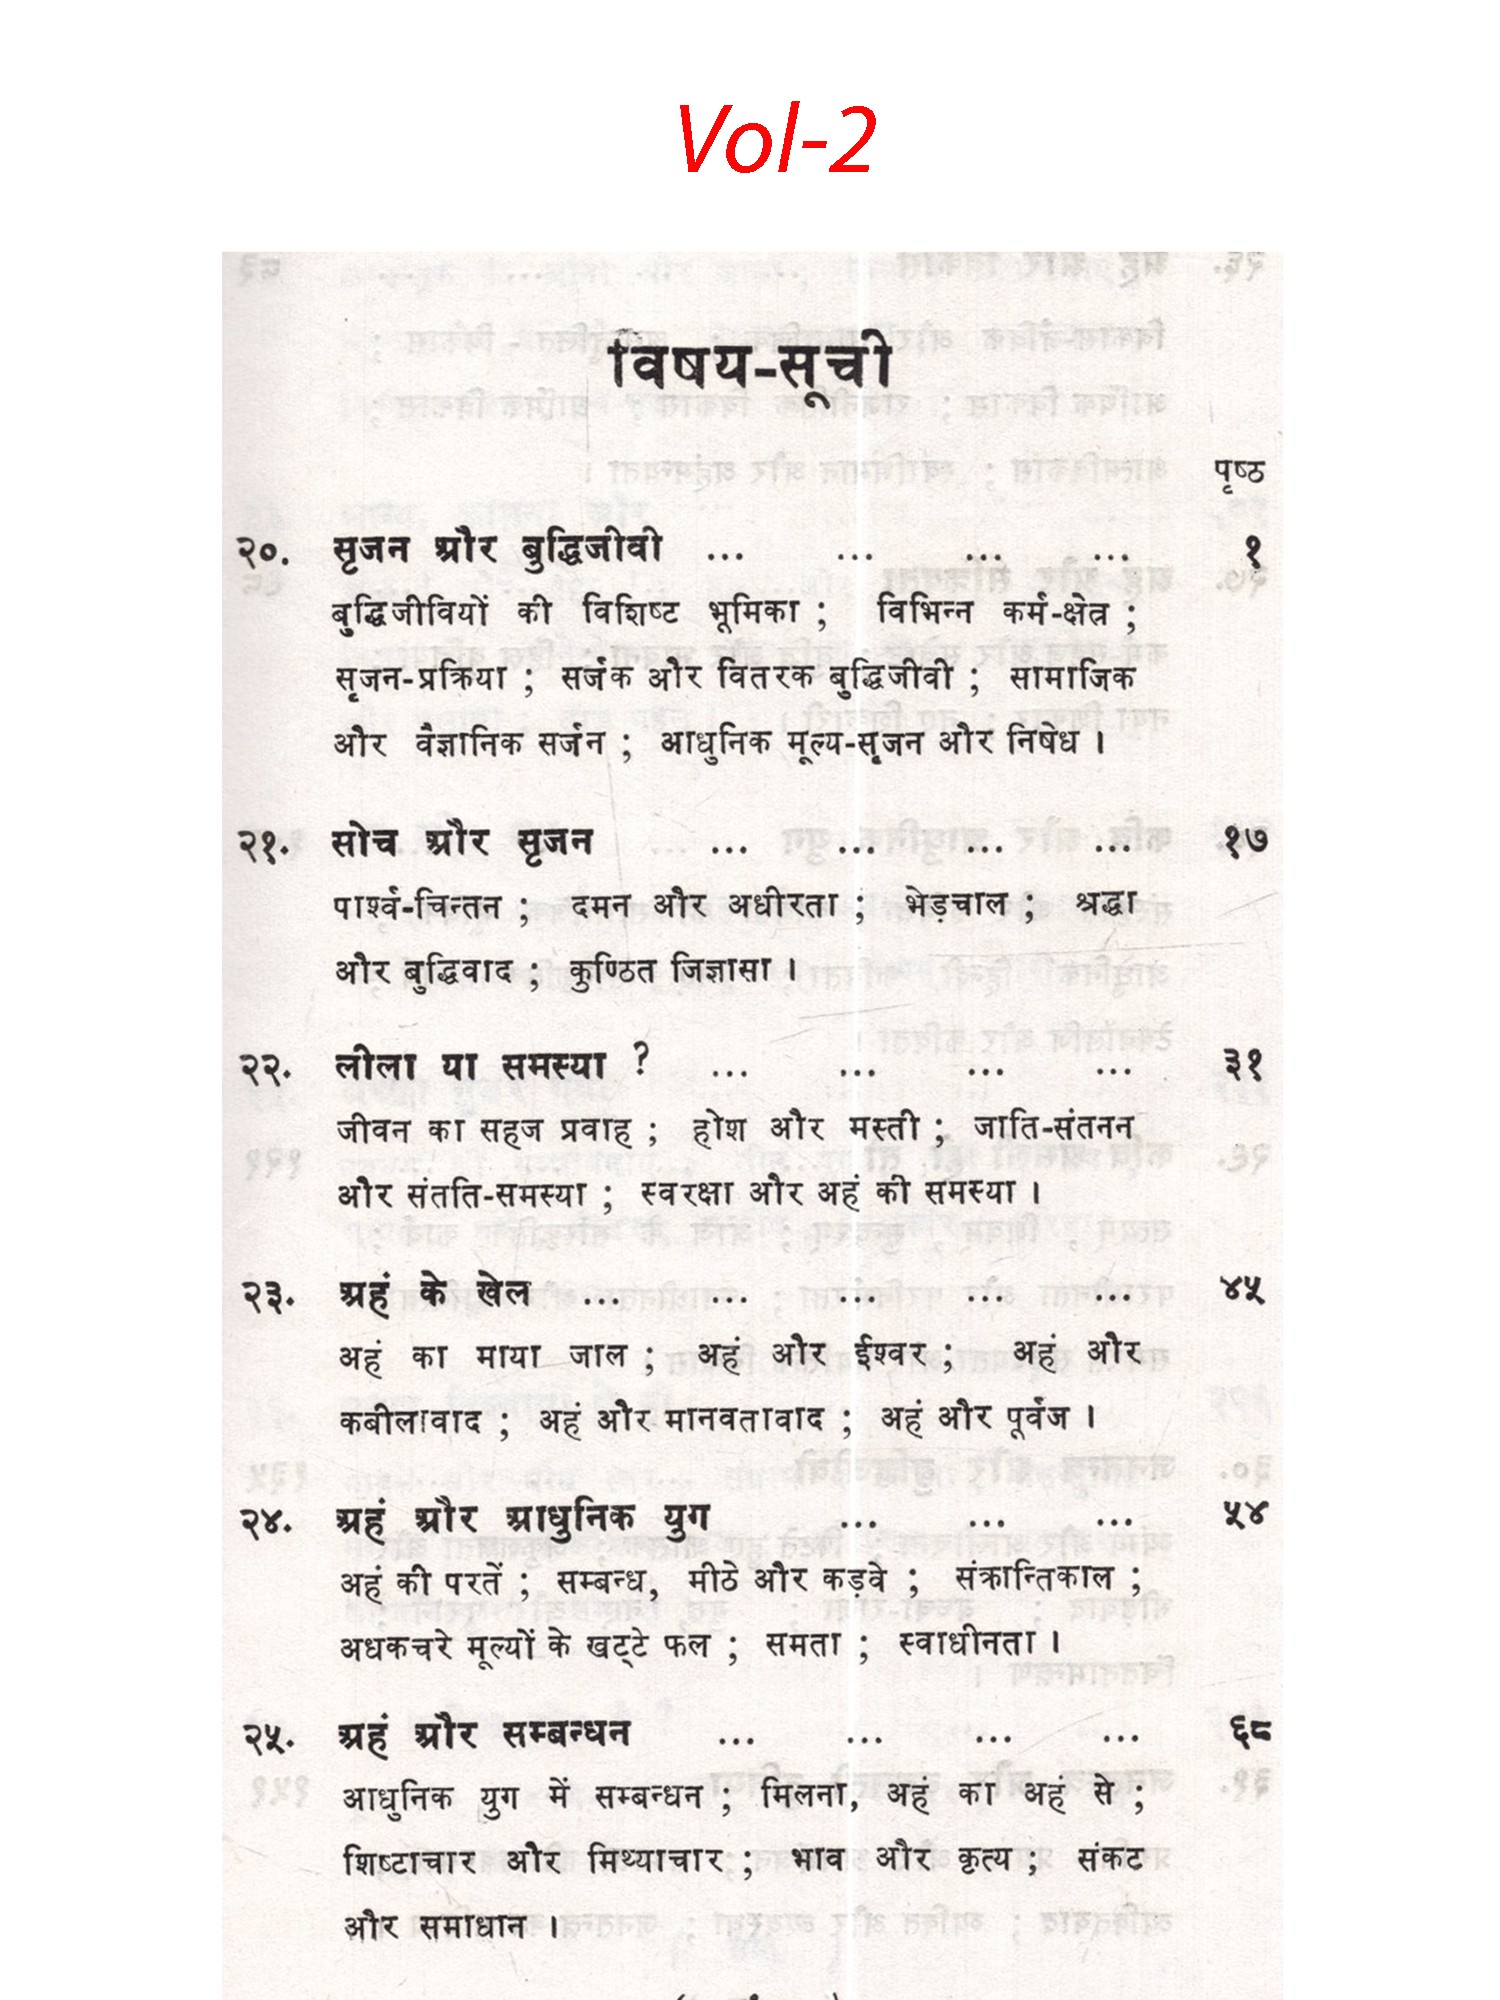 Vol-2
विषय-सूची
पृष्ठ
२०. सृजन और बुद्धिजीवी ... ... ... ... १
बुद्धिजीवियों की विशिष्ट भूमिका ; विभिन्न कर्म-क्षेत्र ;
सृजन-प्रक्रिया ; सर्जक और वितरक बुद्धिजीवी ; सामाजिक
और वैज्ञानिक सर्जन ; आधुनिक मूल्य-सृजन और निषेध ।
२१. सोच और सृजन ... ... ... ... १७
पार्श्व-चिन्तन ; दमन और अधीरता ; भेड़चाल ; श्रद्धा
और बुद्धिवाद ; कुण्ठित जिज्ञासा ।
२२. लीला या समस्या ? ... ... ... ... ३१
जीवन का सहज प्रवाह ; होश और मस्ती ; जाति-संतनन
और संतति-समस्या ; स्वरक्षा और अहं की समस्या ।
२३. अहं के खेल ... ... ... ... ... ४५
अहं का माया जाल ; अहं और ईश्वर ; अहं और
कबीलावाद ; अहं और मानवतावाद ; अहं और पूर्वज ।
२४. अहं और आधुनिक युग ... ... ... ५४
अहं की परतें ; सम्बन्ध, मीठे और कड़वे ; संक्रान्तिकाल ;
अधकचरे मूल्यों के खट्टे फल ; समता ; स्वाधीनता ।
२५. अहं और सम्बन्धन ... ... ... ... ६८
आधुनिक युग में सम्बन्धन ; मिलना, अहं का अहं से ;
शिष्टाचार और मिथ्याचार ; भाव और कृत्य ; संकट
और समाधान ।